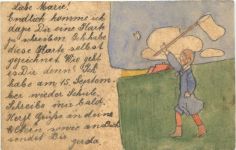 Liebe Marie!
Endlich komme ich
dazu Dir eine Karte
zu schreiben. Ich habe
diese Karte selbst
gezeichnet. Wie geht
es Dir denn? Ich
habe am 15. Septem-
ber wieder Schule.
Schreibe mir bald.
Herzl Grüße an deine
Eltern sowie an Dich
sendet Dir
Gerda.